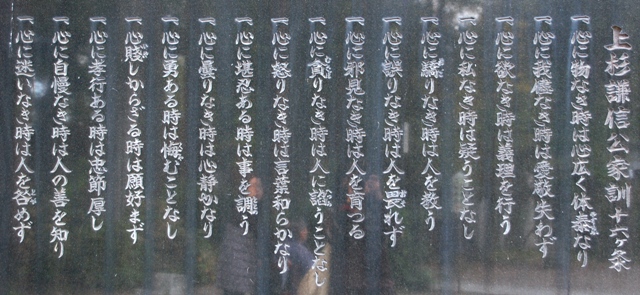 上杉謙信公家訓十六ケ条
一、心に物なき時は心広く体泰なり
一、心に我儘なき時は愛敬失わず
一、心に欲なき時は義理を行う
一、心に私なき時は疑うことなし
一、心に驕りなき時は人を教う
一、心に誤りなき時は人を畏れず
一、心に邪見なき時は人を育つる
一、心に貪りなき時は人に諂うことなし
一、心に怒りなき時は言葉和らかなり
一、心に堪忍ある時は事を調う
一、心に曇りなき時は心静かなり
一、心に勇ある時は悔むことなし
一、心賤しからざる時は願好まず
一、心に孝行ある時は忠節厚し
一、心に自慢なき時は人の善を知り
一、心に迷いなき時は人を咎めず